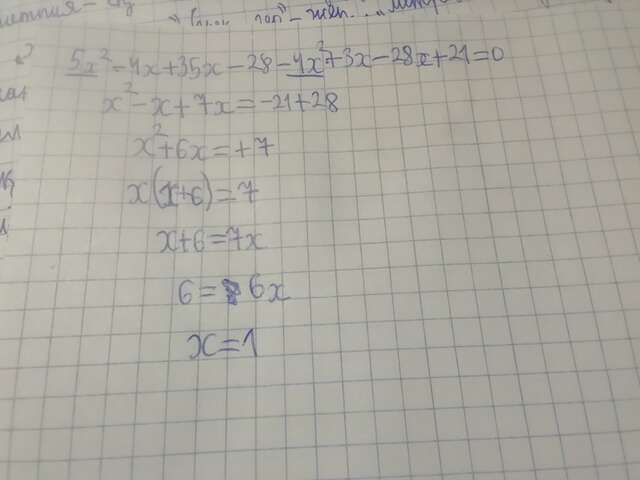 5x² - 4x + 35x - 28 - 4x² + 3x - 28x + 21 = 0
x² - x + 7x = -21 + 28
x² + 6x = +7
x(x+6) = 7
x+6 = 7x
6 = 6x
x = 1